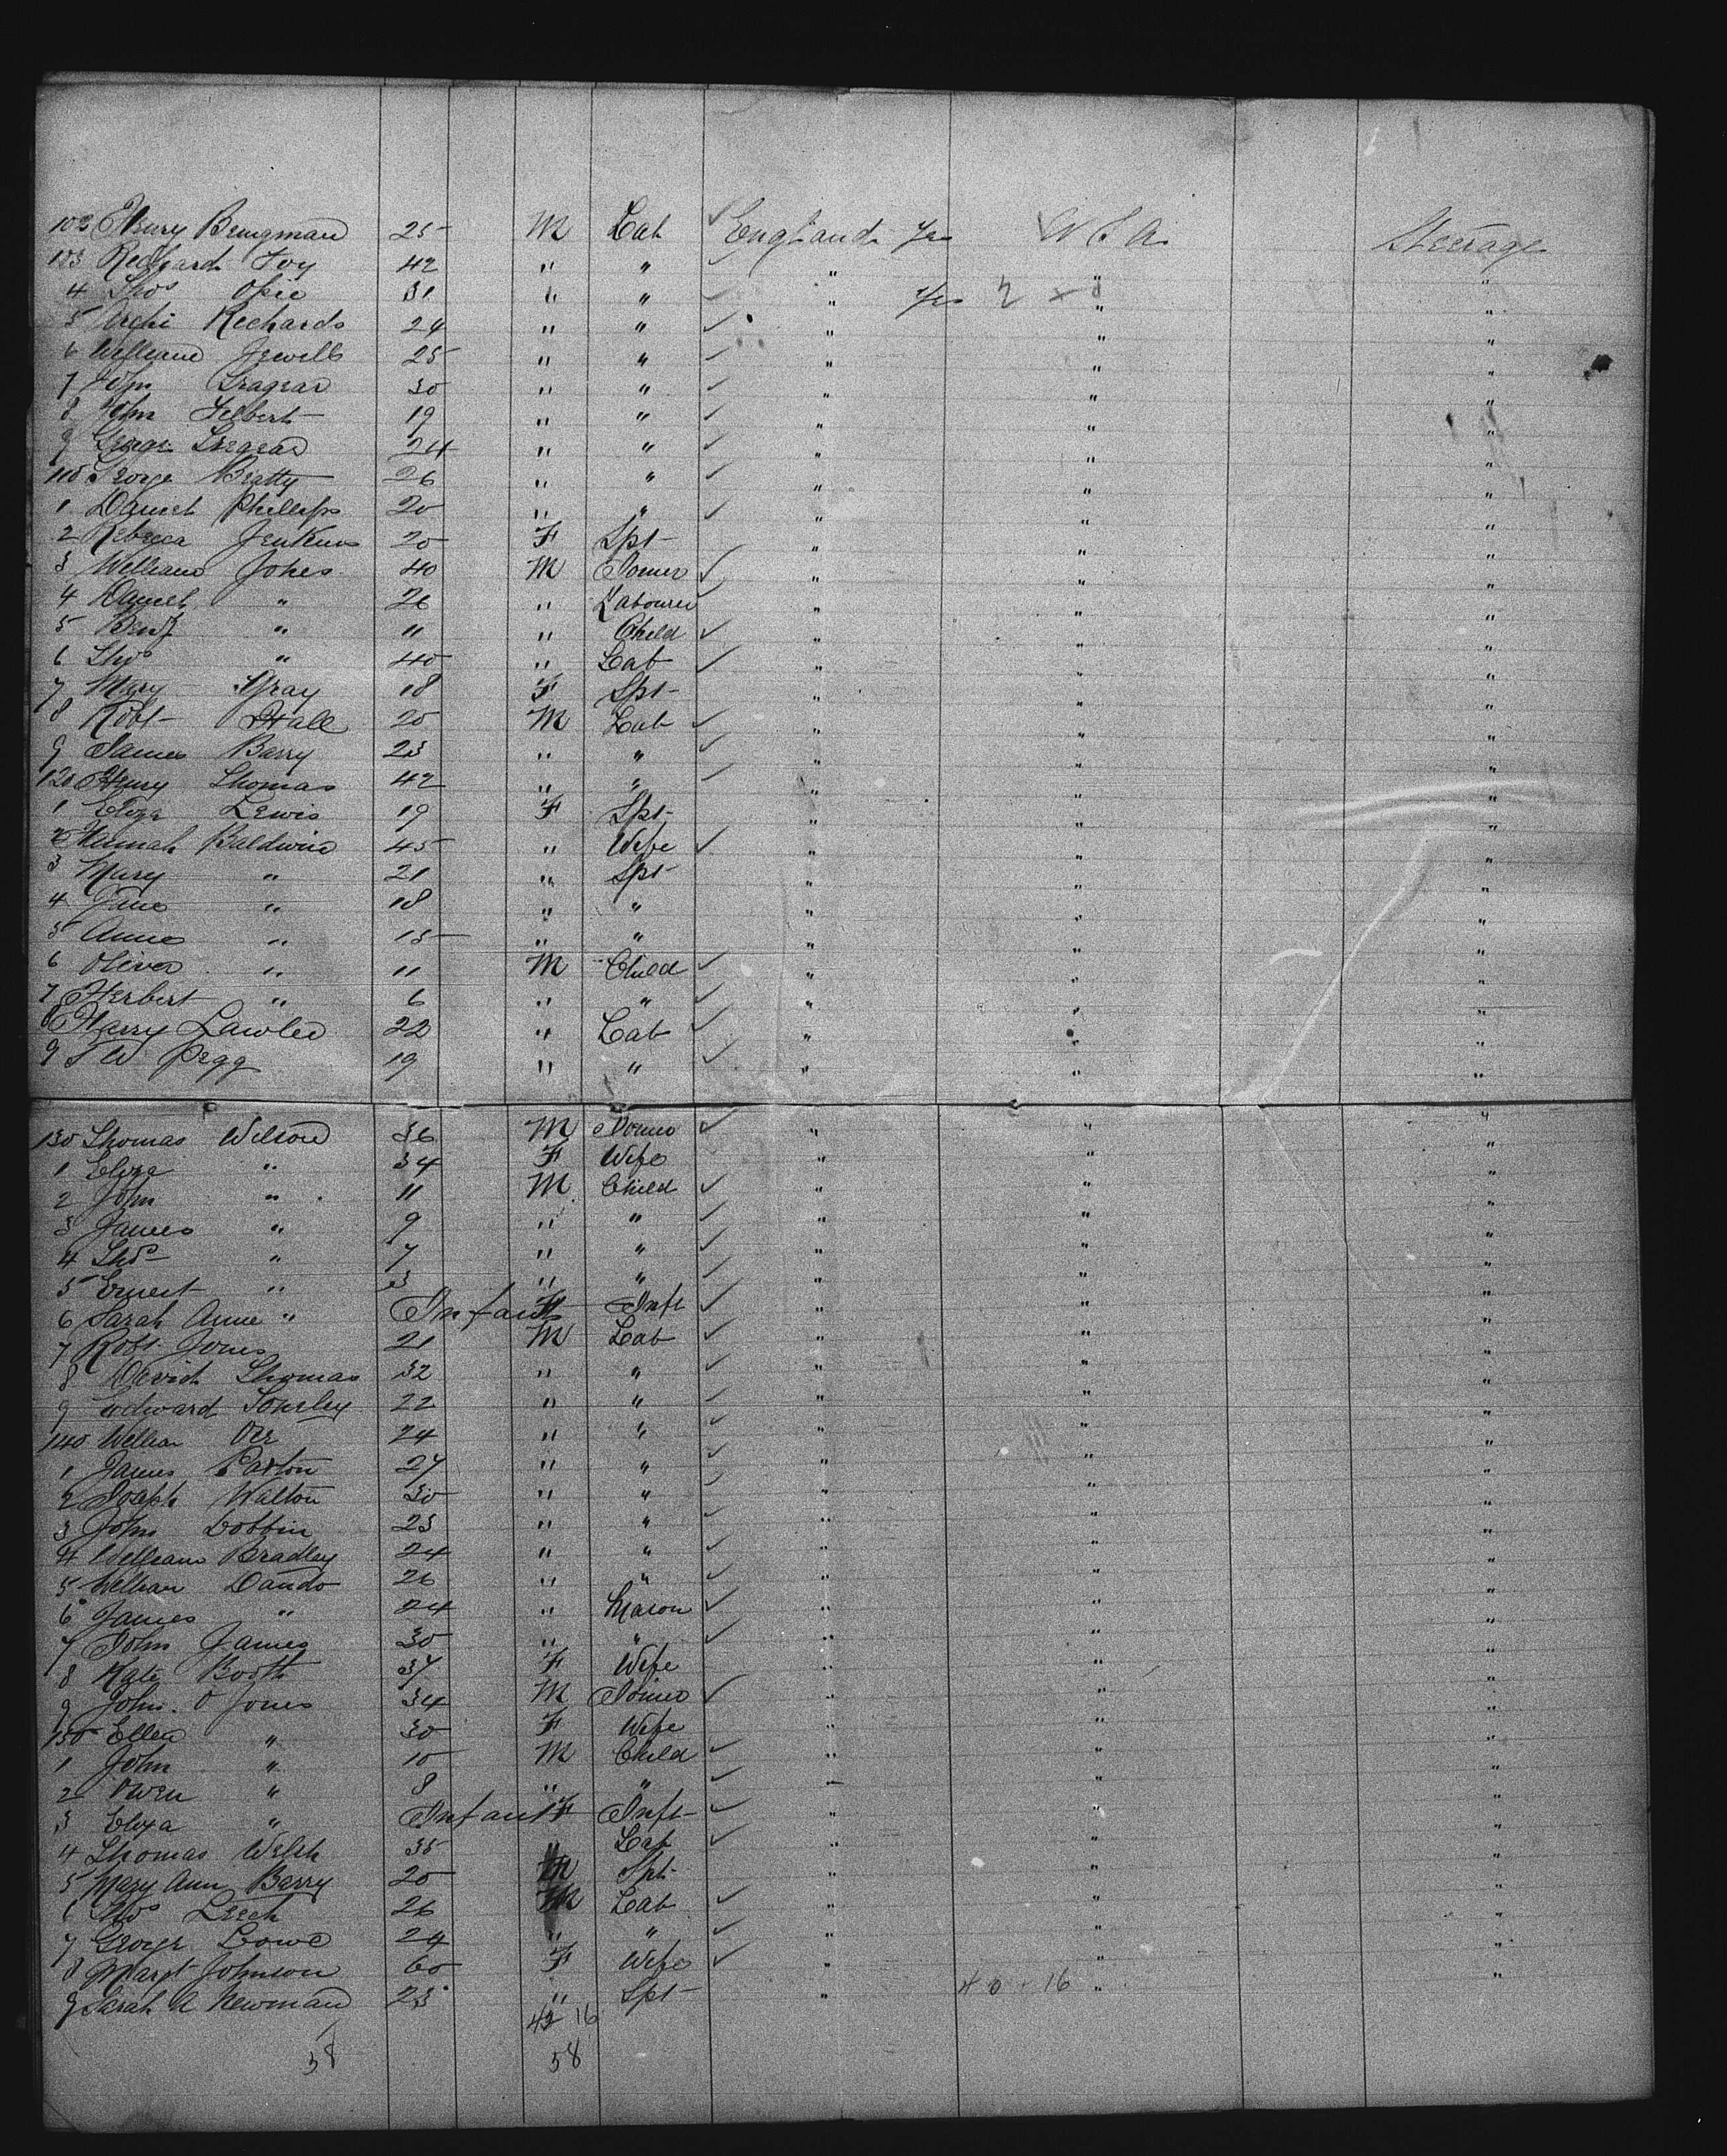 102 Henry Bringman 25 M Lab England Yes U S A Steerage
103 Richard Foy 42 " " " " "
4 Thos Opie 31 " " " Yes " "
5 Archi Richards 24 " " " " "
6 William Jewell 25 " " " " "
7 John Tragear 30 " " " " "
8 John Filbert 19 " " " " "
9 George Tregear 24 " " " " "
110 George Bratty 26 " " " " "
1 Daniel Phillips 20 " " " " "
2 Rebecca Jenkins 20 F Spt " " "
3 William Jones 40 M Joiner " " "
4 Daniel " 26 " Labourer " " "
5 Benj " 11 " Child " " "
6 Thos " 40 " Lab " " "
7 Mary Gray 18 F Spt " " "
8 Robt Hall 20 M Lab " " "
9 James Barry 23 " " " " "
120 Henry Thomas 42 " " " " "
1 Eliza Lewis 19 F Spt " " "
2 Hannah Baldwin 45 " Wife " " "
3 Mary " 21 " Spt " " "
4 Jane " 18 " " " " "
5 Anne " 15 " " " " "
6 Oliver " 11 M Child " " "
7 Herbert " 6 " " " " "
8 Harry Lawler 22 " Lab " " "
9 T W Pegg 19 " " " " "
130 Thomas Wilson 36 M Joiner " " "
1 Eliza " 34 F Wife " " "
2 John " 11 M Child " " "
3 James " 9 " " " " "
4 Thos " 7 " " " " "
5 Ernest " 3 " " " " "
6 Sarah Anne " Infant F Inft " " "
7 Robt Jones 21 M Lab " " "
8 David Thomas 32 " " " " "
9 Edward Tonsley 22 " " " " "
140 William Orr 24 " " " " "
1 James Paxton 27 " " " " "
2 Joseph Walton 30 " " " " "
3 John Dobbin 23 " " " " "
4 William Bradley 24 " " " " "
5 William Dando 26 " " " " "
6 James " 24 " Mason " " "
7 John James 30 " " " " "
8 Kate Booth 37 F Wife " " "
9 John O Jones 34 M Joiner " " "
150 Ellen " 30 F Wife " " "
1 John " 10 M Child " " "
2 Owen " 8 " " " " "
3 Eliza " Infant F Inft " " "
4 Thomas Welsh 35 Lab " " "
5 Mary Ann Barry 20 Spt " " "
6 Thos Leech 26 M Lab " " "
7 George Lowe 24 " " " " "
8 Margt Johnson 60 F Wife " " "
9 Sarah A Newman 23 " Spt " 40 16 " "
42 16
58 58